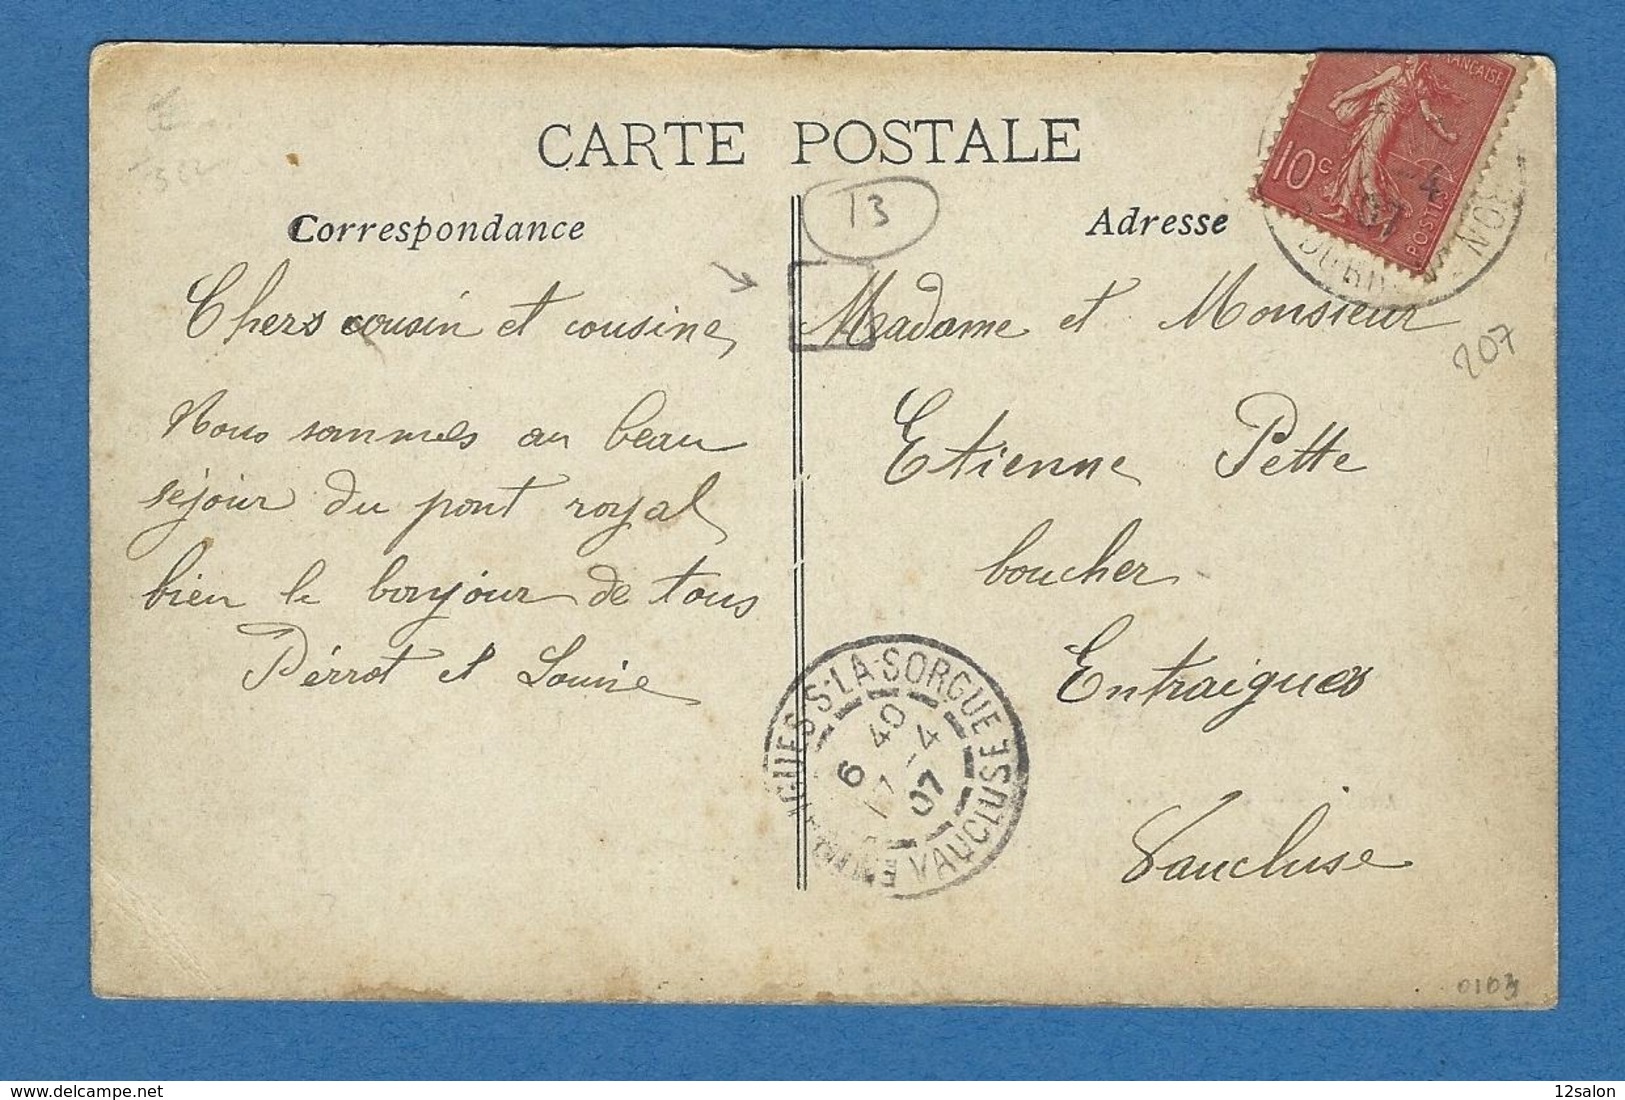 CARTE POSTALE
Correspondance
Chers cousin et cousine,
Nous sommes au beau
séjour du pont royal
bien le bonjour de tous
Pérrot et Louise
13
Adresse
Madame et Monsieur
Etienne Pette
boucher
Entraigues
Vaucluse
FRANÇAISE
10c
POSTES
-4
07
207
S-LA-SORGUE
VAUCLUSE
6 40
17 -4
07
0103
12salon